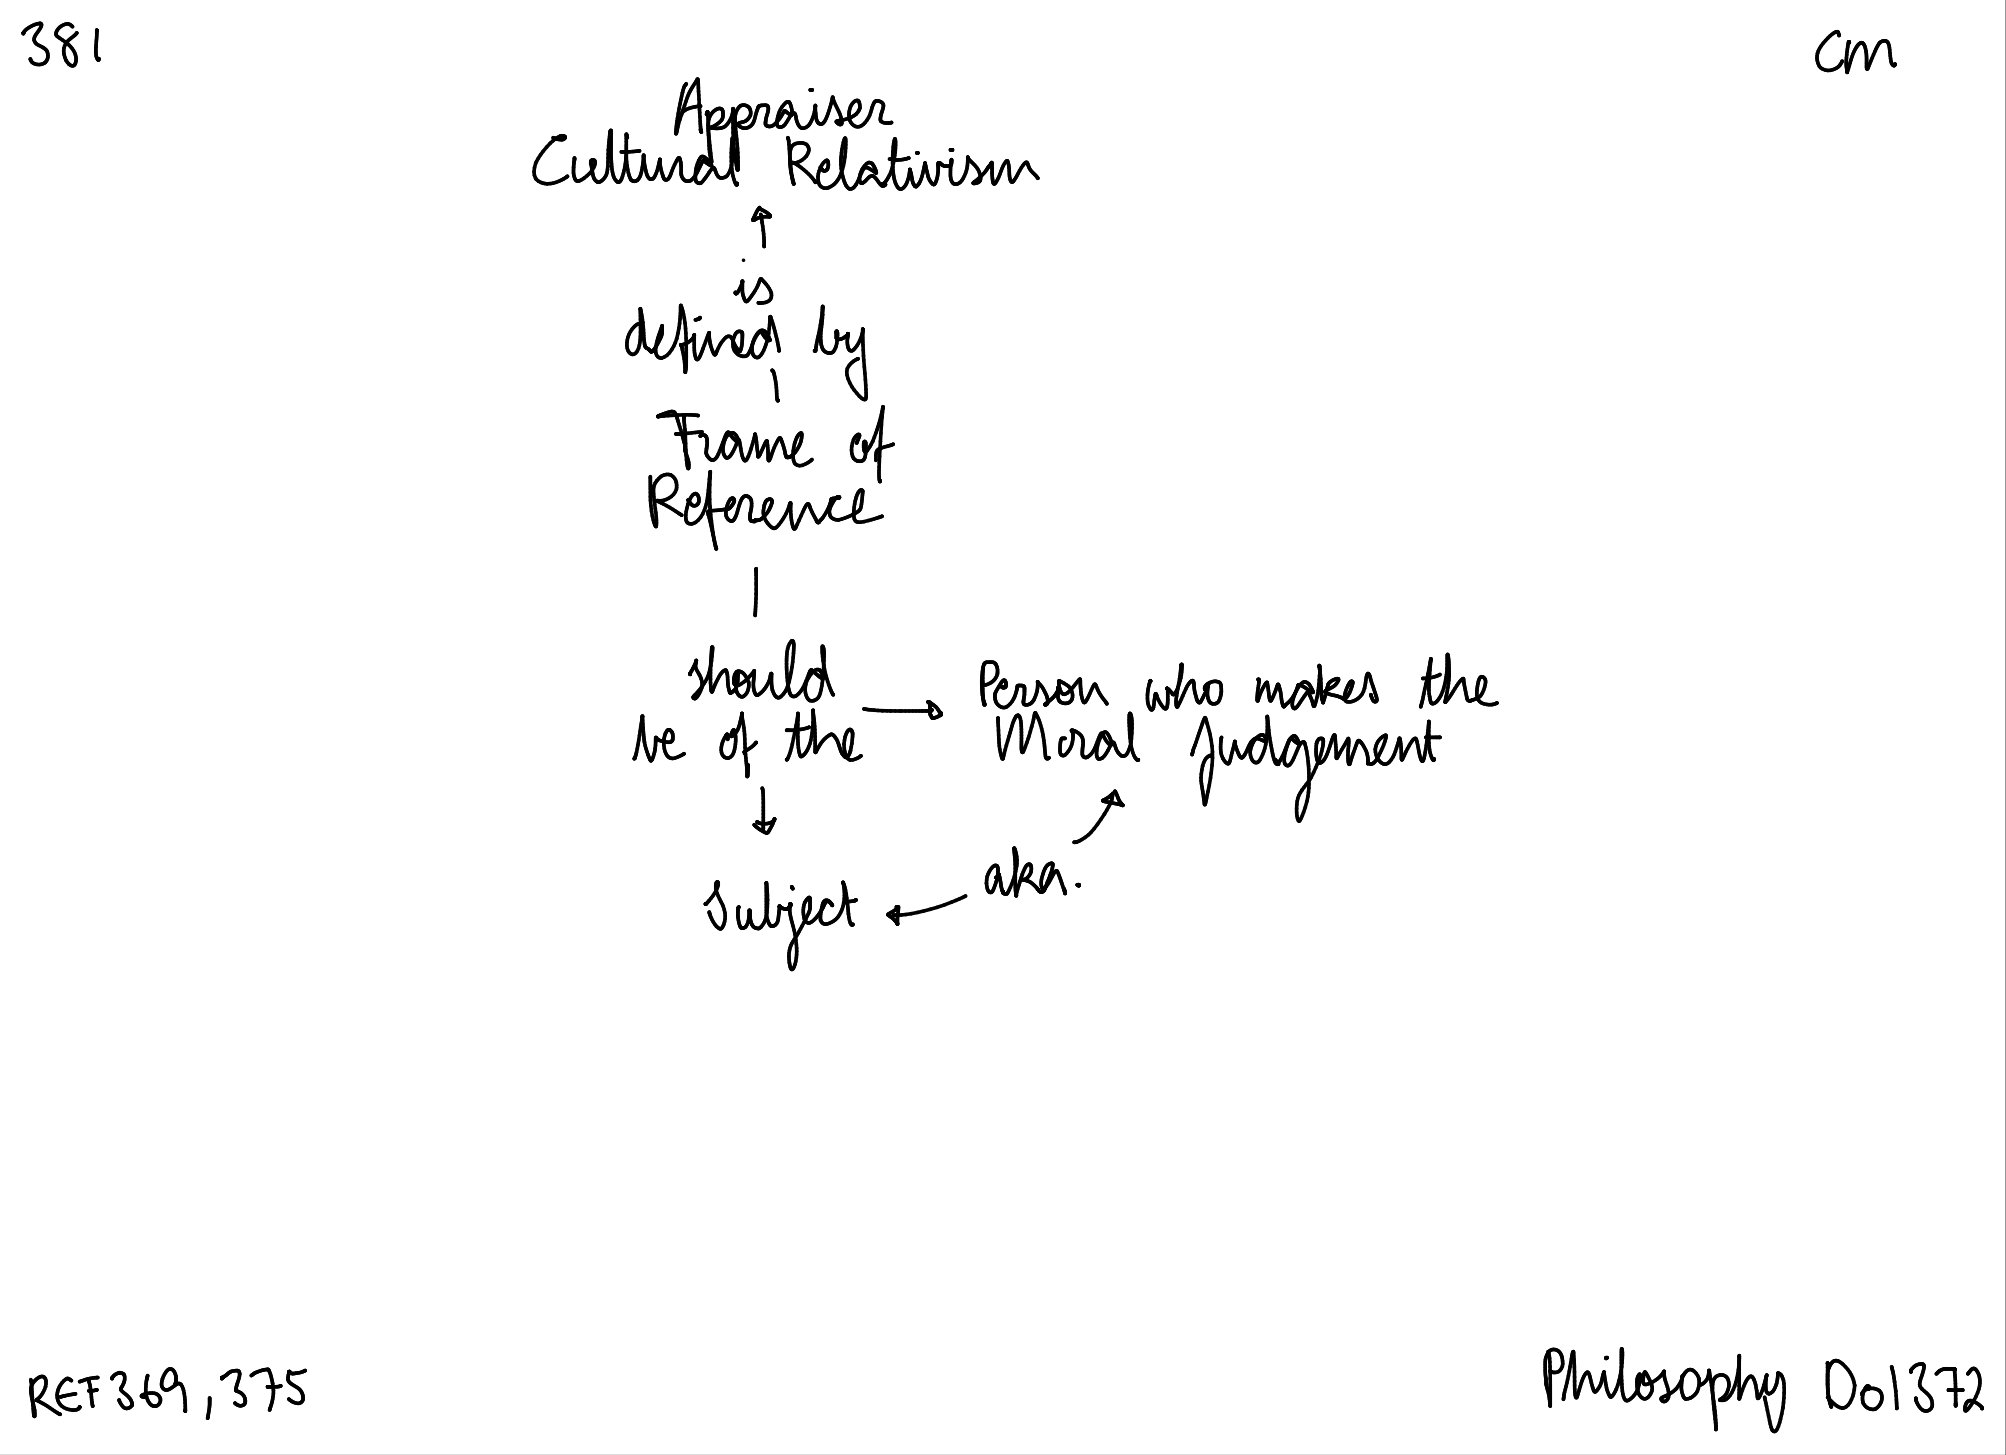 381
Cm
Appraiser
Cultural Relativism
is
defined by
Frame of
Reference
should
be of the
Person who makes the
Moral Judgement
aka.
Subject
REF369,375
Philosophy Do1372